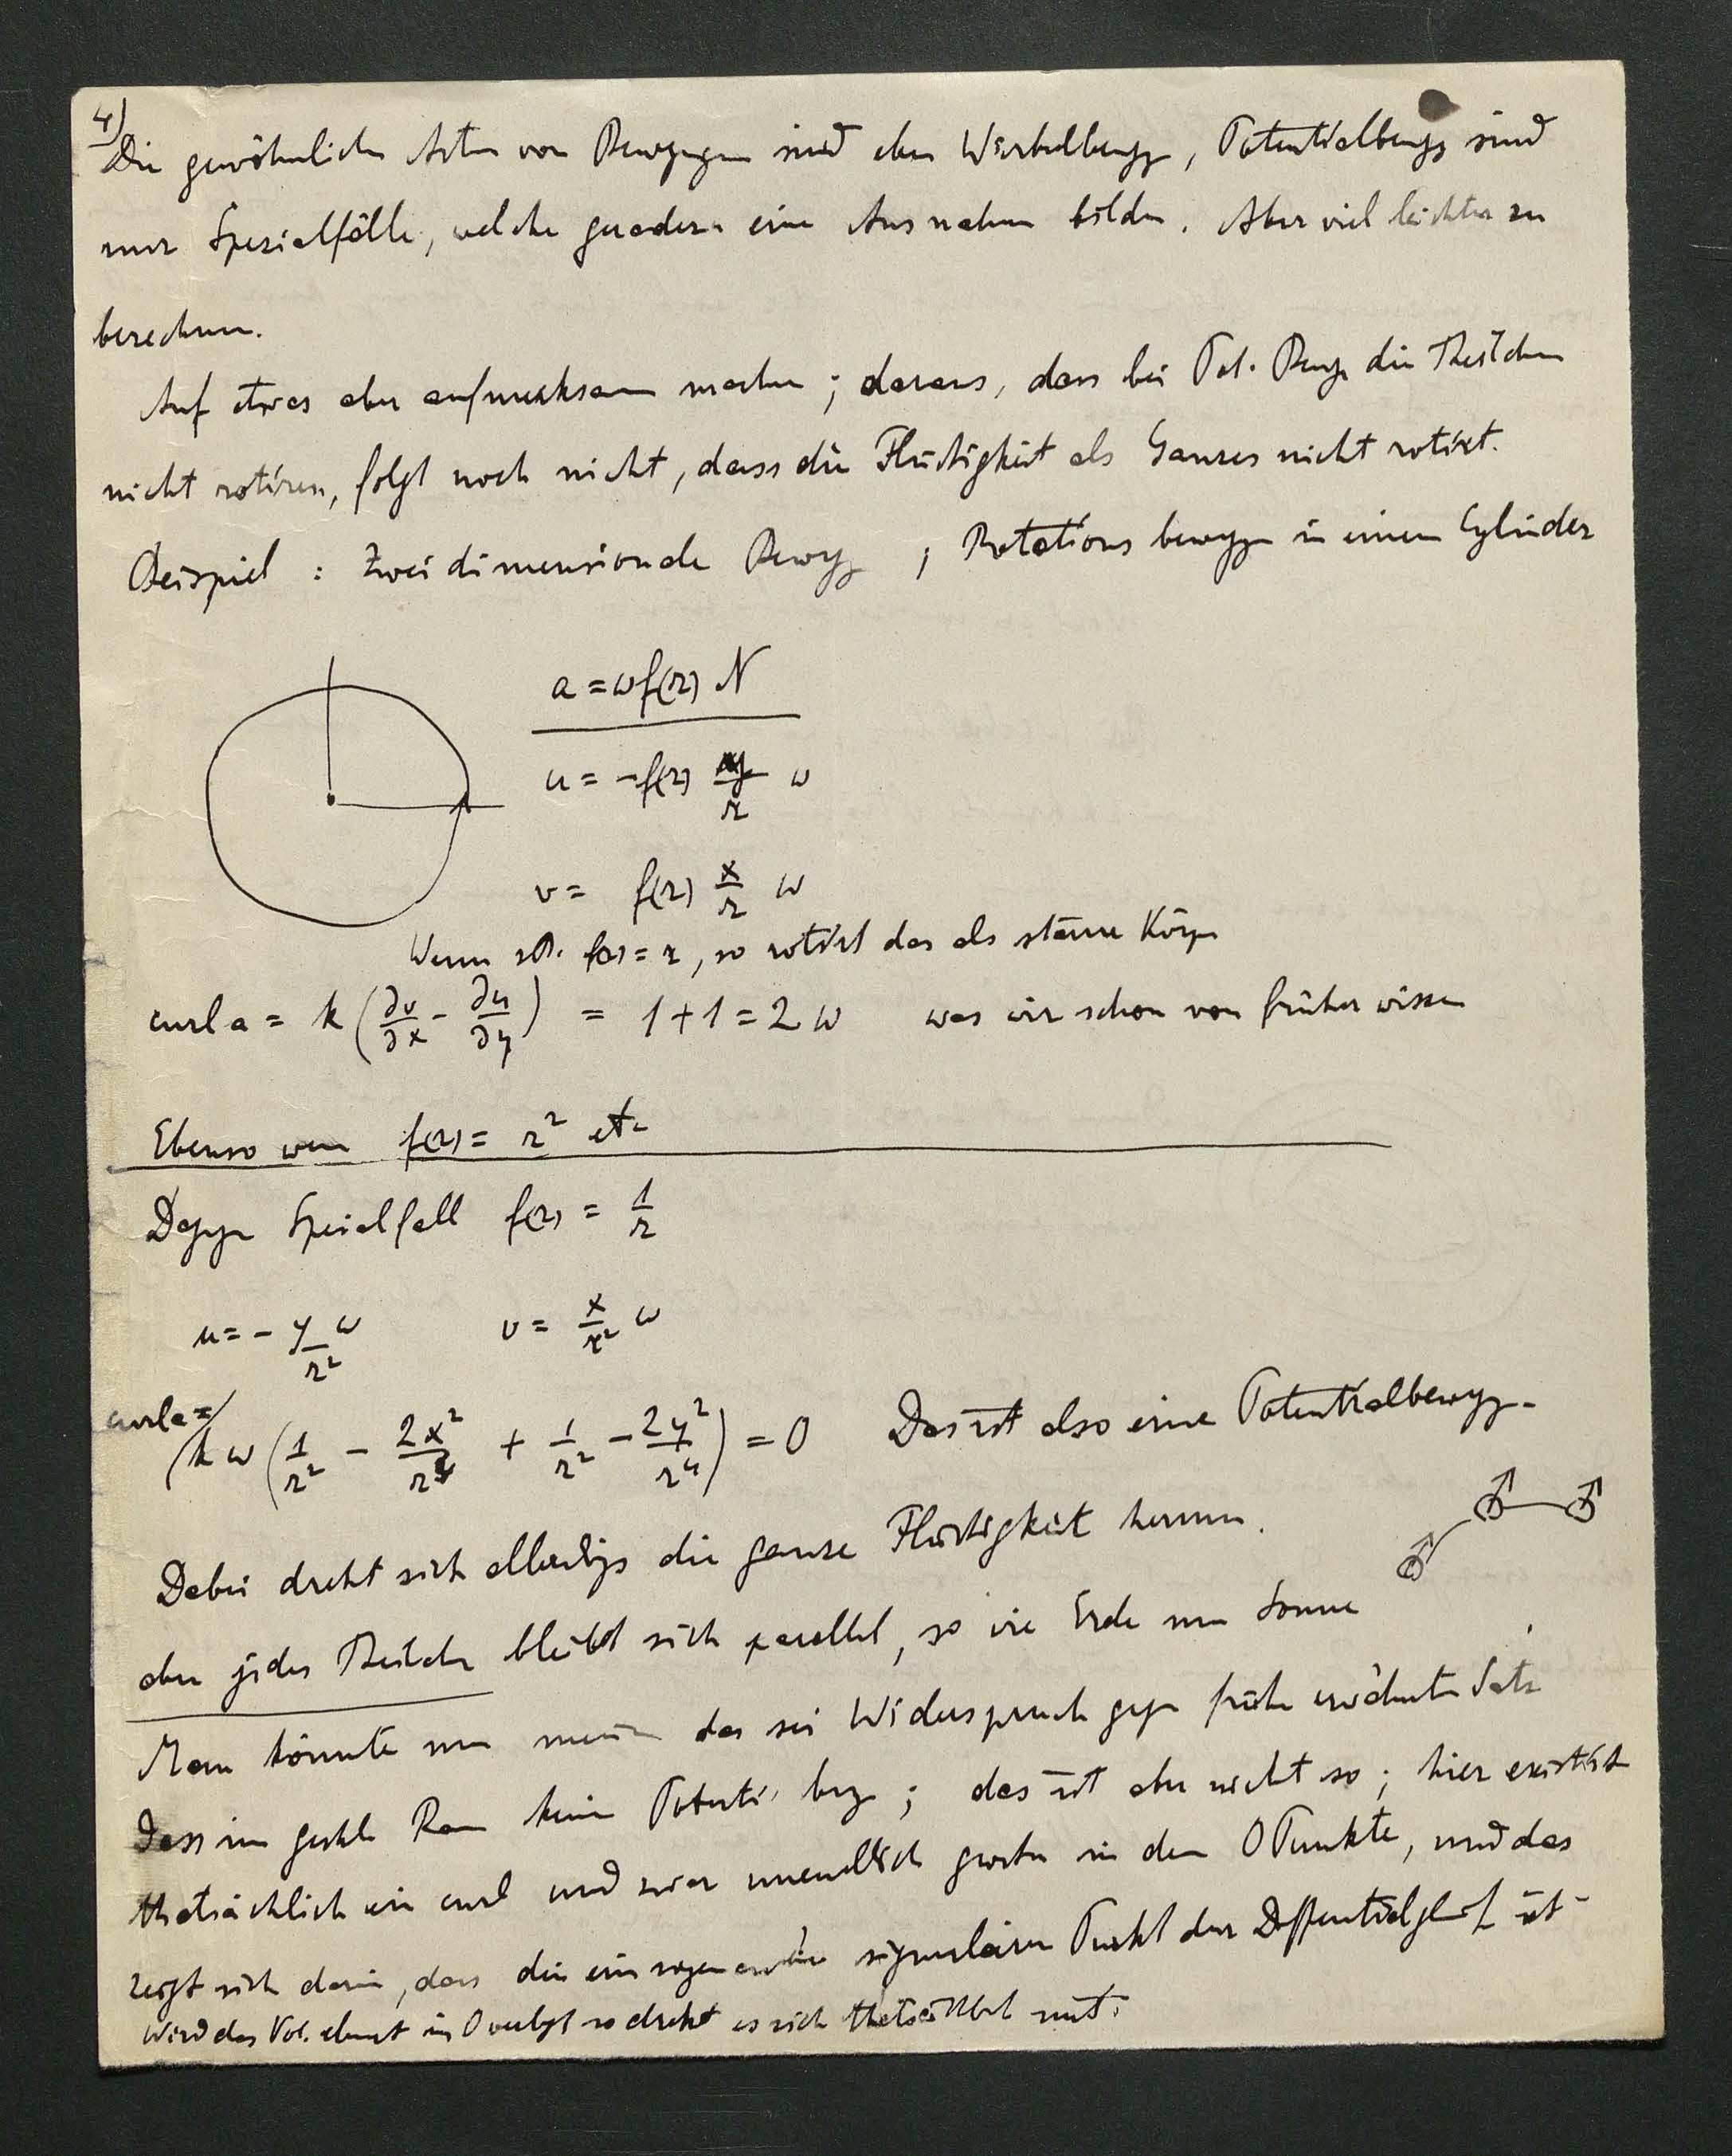 4)
Die gewöhnlichen Arten von Bewegungen sind eben Wirbelbewgg, Potentialbewgg sind
nur Spezialfälle, welche geradezu eine Ausnahme bilden. Aber viel leichter zu
berechnen.
Auf etwas aber aufmerksam machen; daraus, dass bei Pot. Bewg die Theilchen
nicht rotiren, folgt noch nicht, dass die Flüssigkeit als Ganzes nicht rotirt.
Beispiel: Zweidimensionale Bewgg, Rotationsbewgg in einem Cylinder
a = ω f(r) N
u = - f(r) y/r ω
v = f(r) x/r ω
Wenn f(r) = r, so rotirt das als starrer Körper
curl a = k (∂v/∂x - ∂u/∂y) = 1+1 = 2 ω was wir schon von früher wissen
Ebenso wenn f(r) = r² etc
Dagegen Spezialfall f(r) = 1/r
u = - y/r² ω v = x/r² ω
curl a =
k ω (1/r² - 2x²/r⁴ + 1/r² - 2y²/r⁴) = 0 Das ist also eine Potentialbewgg.
Dabei dreht sich allerdings die ganze Flüssigkeit herum.
aber jedes Theilchen bleibt sich parallel, so wie Erde um Sonne
Man könnte nun meinen das sei Widerspruch gegen früher erwähnten Satz
dass im Raum keine Potenti bewg; das ist aber nicht so; hier existirt
thatsächlich ein curl und zwar unendlich grosser in dem 0 Punkte, und das
zeigt sich darin, dass dies ein sogenannter singulärer Punkt der Differentialgleich ist
Wird das Vol. element in 0 verlegt so dreht es sich thatsächlich mit.